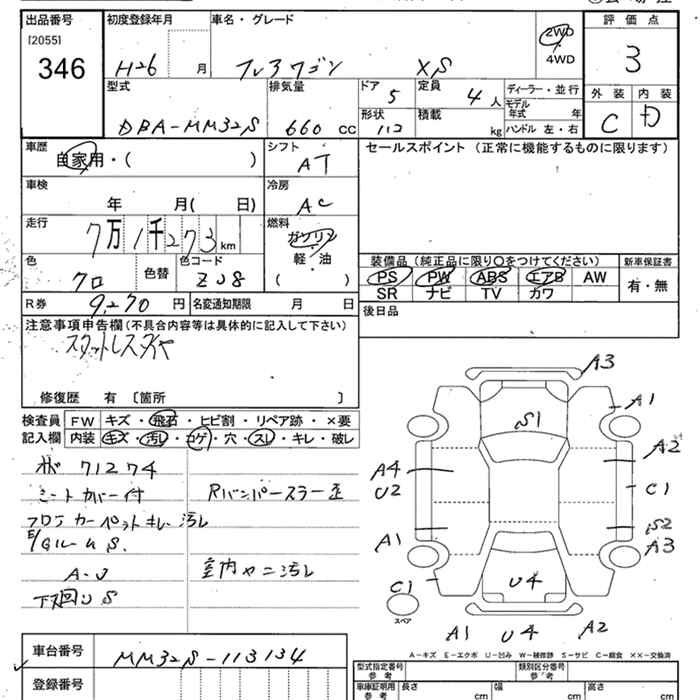 出品番号 初度登録年月 車名・グレード 評価点
[2055]
346
H26 月 フレアワゴン XS
2WD
・
4WD
3
型式 排気量 ドア 定員 ディーラー・並行 外装 内装
DBA-MM32S 660 cc 5 4人
形状 積載 モデル年式 年
112 kg ハンドル 左・右
C D
車歴 シフト セールスポイント (正常に機能するものに限ります)
自家用・( ) AT
車検 冷房
年 月( 日) AC
走行 燃料
7万1千273km ガソリン
軽・油
( )
装備品 (純正品に限り○をつけてください) 新車保証書
色 色替 色コード
クロ ZJ8
PS PW ABS エアB AW 有・無
SR ナビ TV カワ
R券 9,270 円 名変通知期限 月 日
後日品
注意事項申告欄(不具合内容等は具体的に記入して下さい)
スタットレスタイヤ
修復歴 有 〔箇所 〕
検査員 FW キズ・飛石・ヒビ割・リペア跡・×要
記入欄 内装 キズ・汚レ・コゲ・穴・スレ・キレ・破レ
71274
シートカバー付 Rバンパースラー歪
フロアカーペットキレ汚レ
E/Gルーム S
A-J 室内ヤニ汚レ
下廻り S
A3
A1
S1
A2
A4
U2
C1
A1
S2
A3
C1
U4
スペア
A1 U4 A2
A-キズ E-エクボ U-凹み W-補修跡 S-サビ C-腐食 XX-交換済
車台番号 MM32S-113134
型式指定番号 参考 類別区分番号 参考
登録番号
車庫証明用 参考 長さ cm 幅 cm 高さ cm